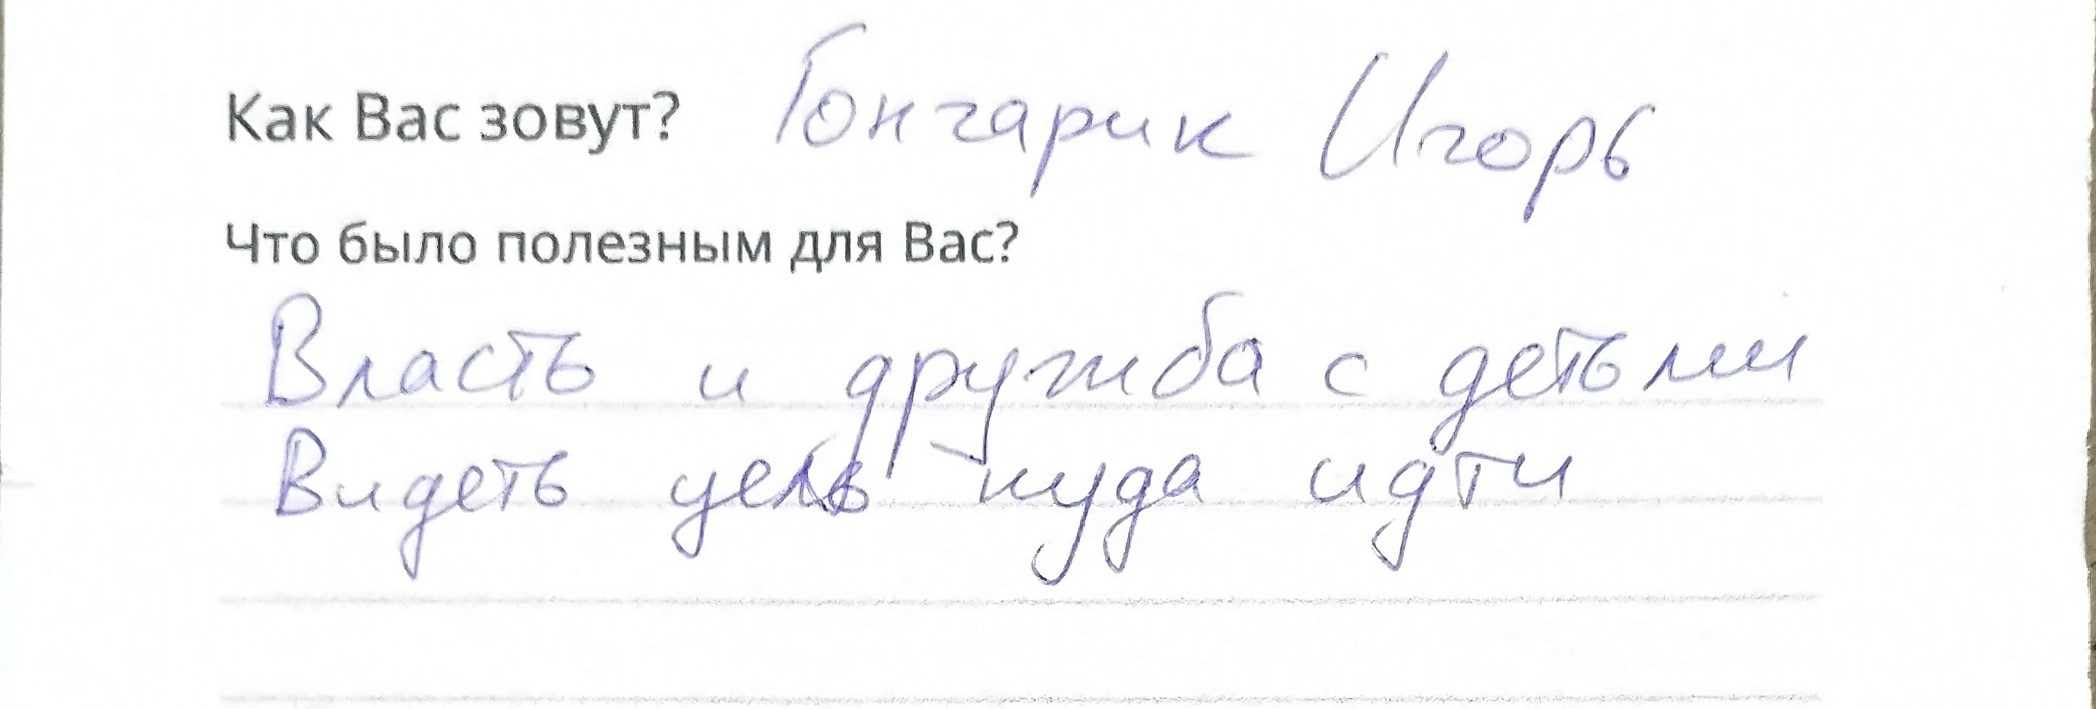 Как Вас зовут? Гончарик Игорь
Что было полезным для Вас?
Власть и дружба с детьми
Видеть цель куда идти